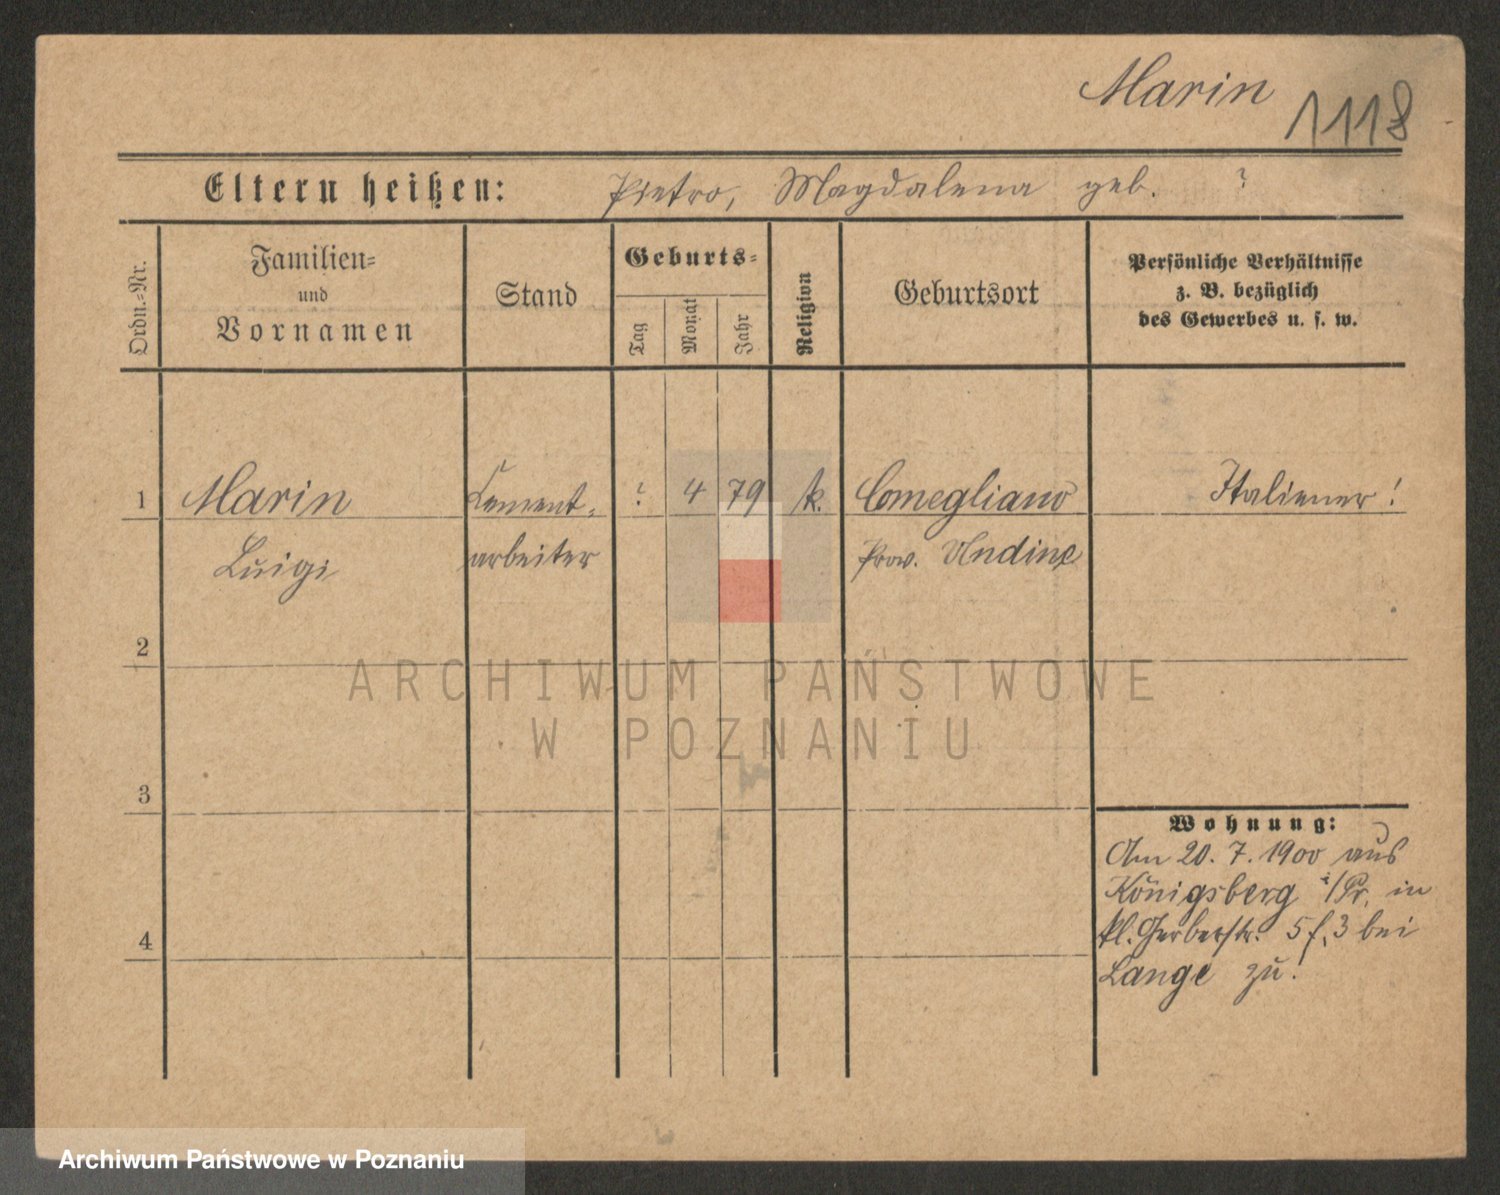 Marin
1118
Eltern heißen: Pietro, Magdalena geb. ?
Ordn.-Nr.
Familien-
und
Vornamen
Stand
Geburts-
Tag
Monat
Jahr
Religion
Geburtsort
Persönliche Verhältnisse
z. B. bezüglich
des Gewerbes u. s. w.
1 Marin Cement- ? 4 79 k. Comegliano Italiener!
Luigi arbeiter Prov. Undine
2
ARCHIWUM PAŃSTWOWE
W POZNANIU
3
Wohnung:
Am 20. 7. 1900 aus
Königsberg i/Pr. in
kl. Gerberstr. 5 f. 3 bei
4
Lange zu.
Archiwum Państwowe w Poznaniu